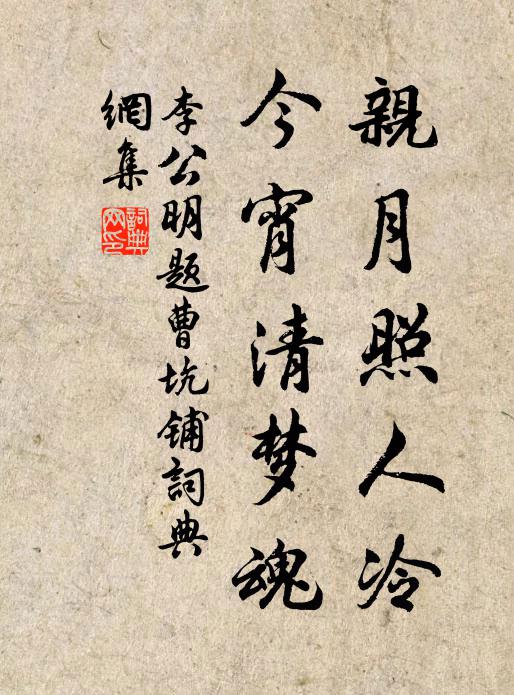 親月照人冷
今宵清梦魂
李公明题曹坑铺詞典
網集
詞典網印